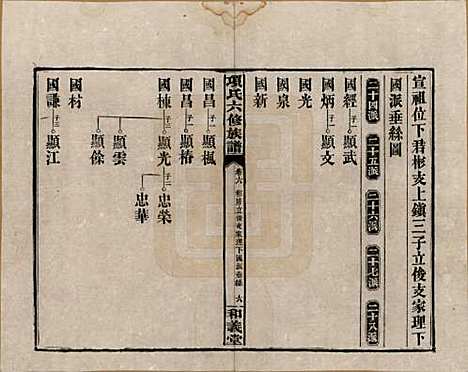 宣祖位下君彬支上鎮三子立俊支家理下
國派垂絲圖
二十四派 二十五派 二十六派 二十七派 二十八派
國經 子一 顯武
國炳 子一 顯文
國光
國泉
國新
項氏六修族譜 卷六 六 和義堂
國昌 子一 顯楓
國昌 子一 顯椿
國棟 子三 顯光 子二 忠榮
忠華
顯雲
顯條
國材
國謙 子一 顯江